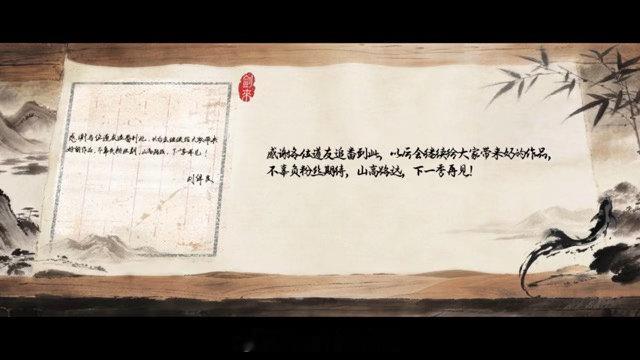 感谢各位道友追番到此，以后会继续给大家带来
好的作品，不辜负粉丝期待，山高路远，下一季再见！
剑来
感谢各位道友追番到此，以后会继续给大家带来好的作品，
不辜负粉丝期待，山高路远，下一季再见！